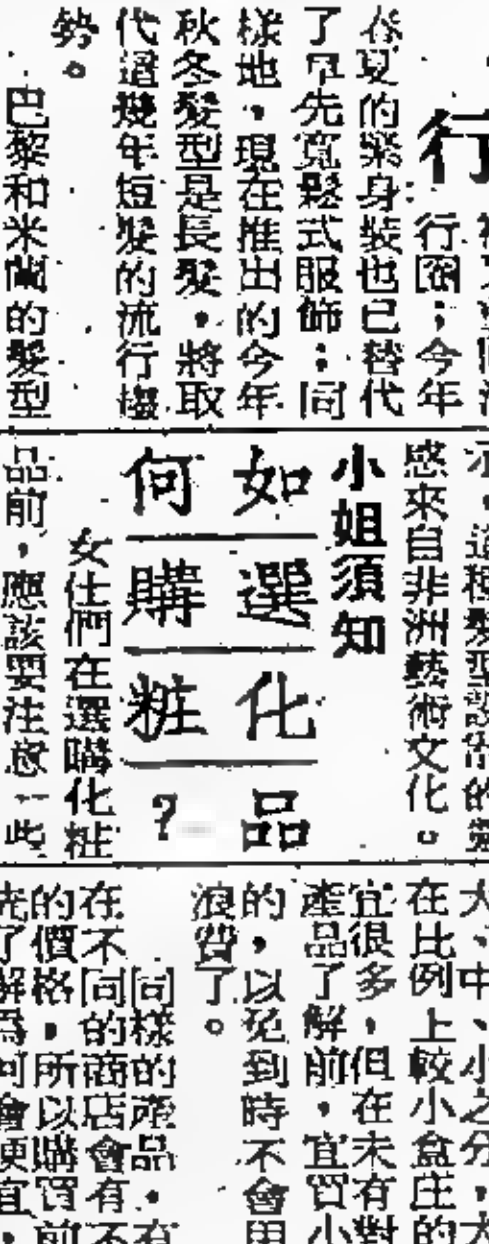 行
行圈；今年
春夏的緊身裝也已替代
了早先寬鬆式服飾；同
樣地，現在推出的今年
秋冬髮型是長髮，將取
代過幾年短髮的流行趨
勢。
巴黎和米蘭的髮型
感來自非洲藝術文化。
小姐須知
如何
選購
化粧
品？
女仕們在選購化粧
品前，應該要注意一些
大、中、小之分，大
在比例上較小盒庄的
宜很多，但在未有對
產品了解前，宜買小
的，以免到時不會用
浪費了。
同樣的產品，有
在不同的商店會有不
的價格，所以購買前
先了解為何會便宜，